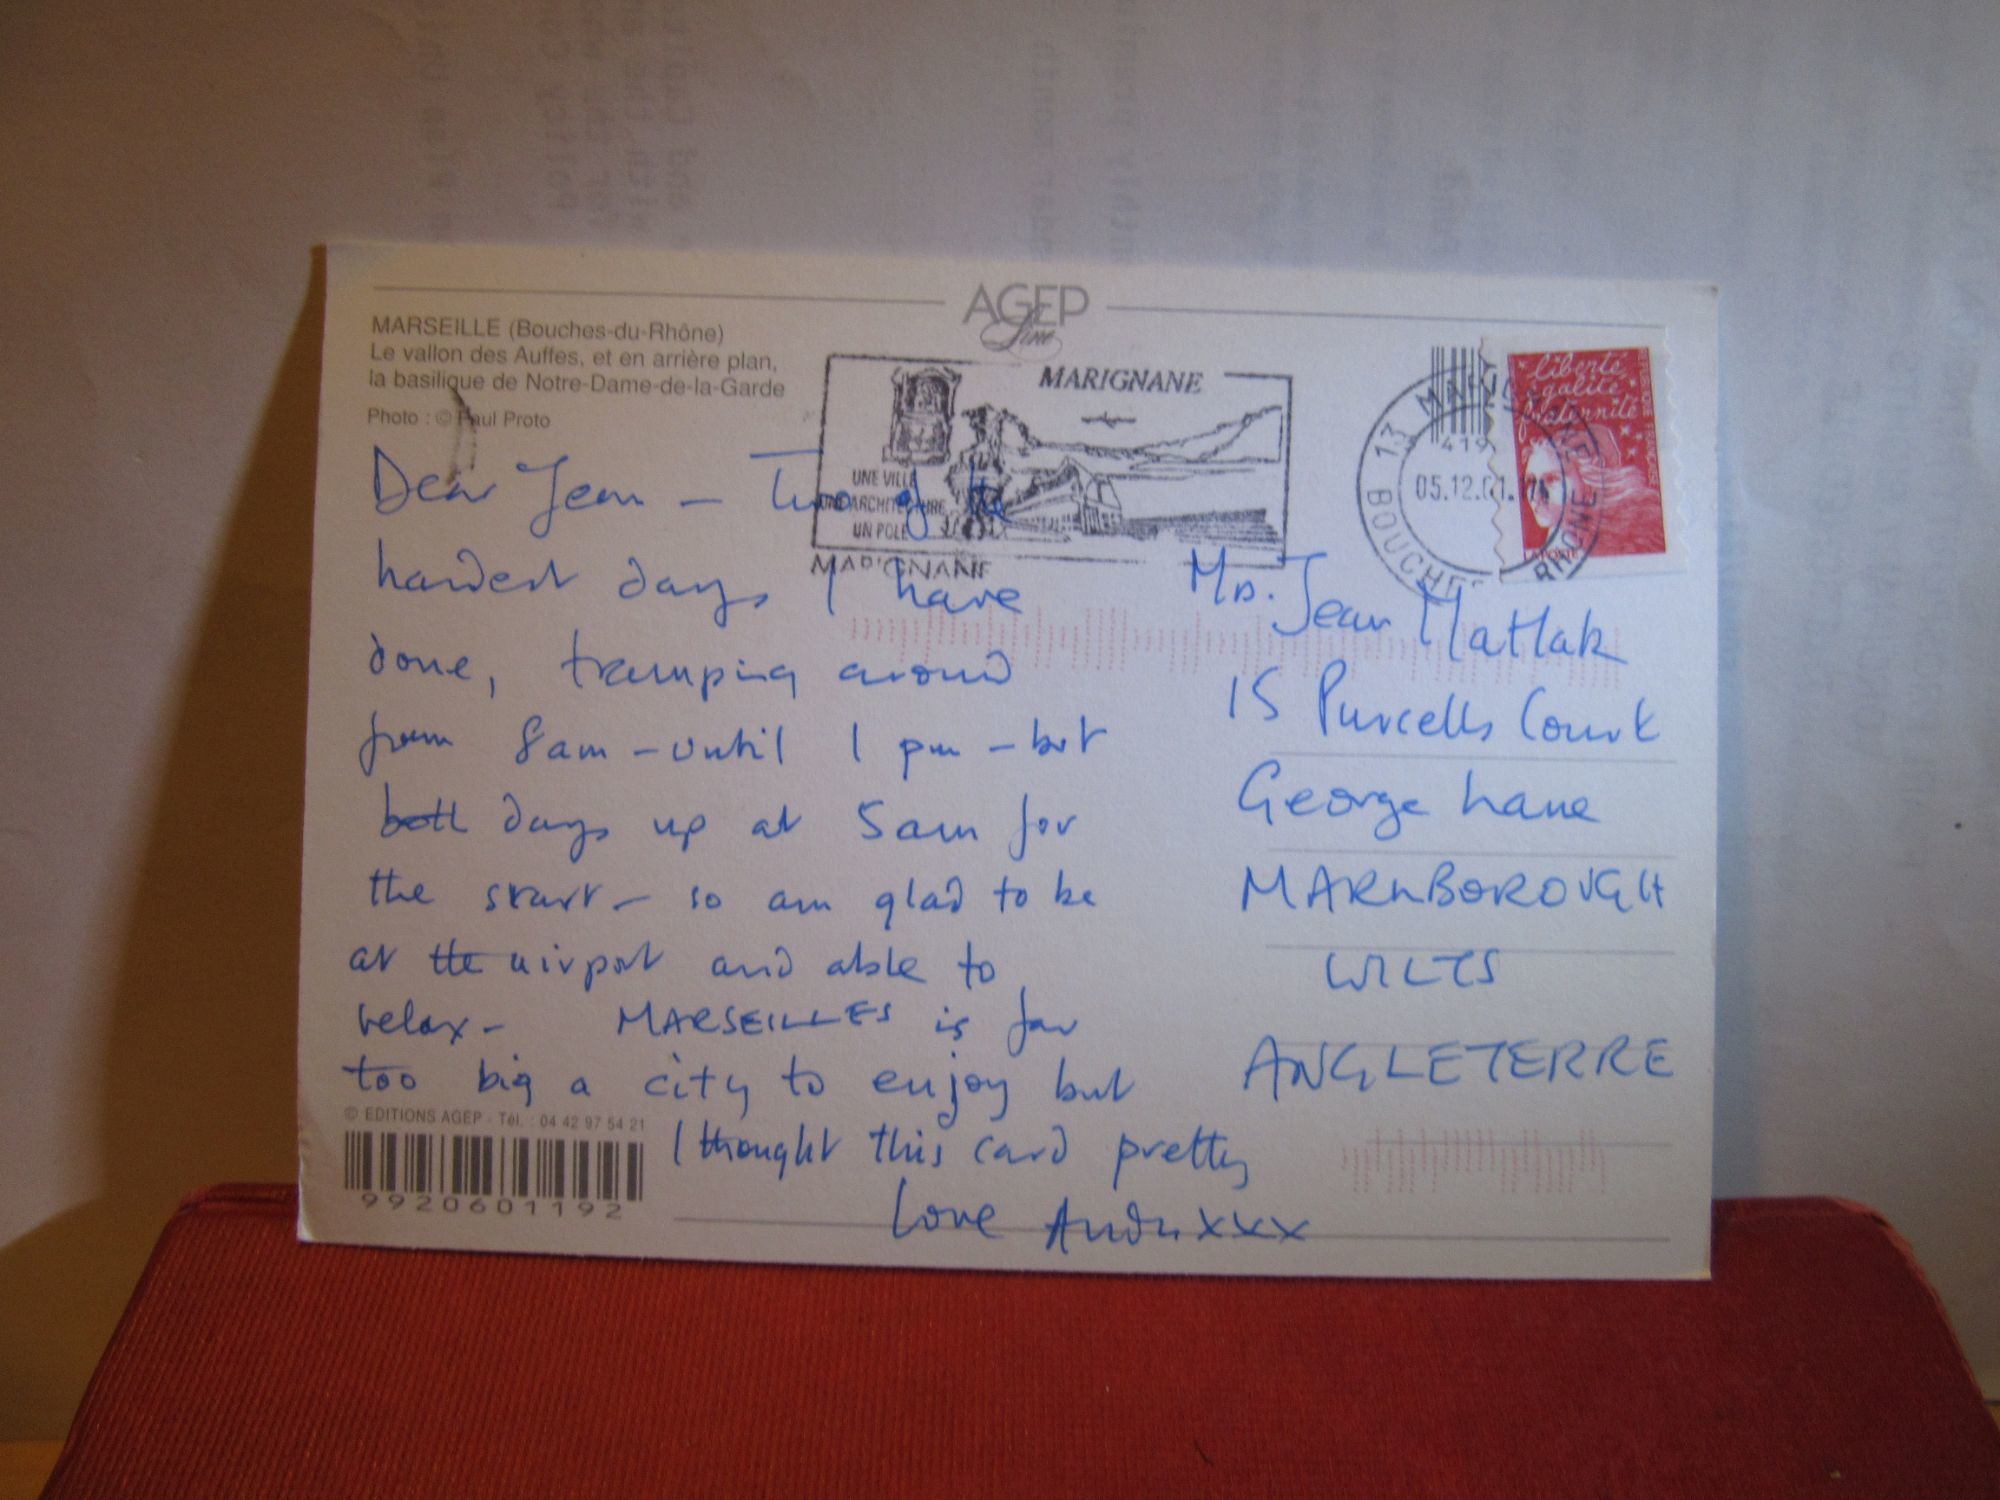 AGEP
Line
MARSEILLE (Bouches-du-Rhône)
Le vallon des Auffes, et en arrière plan,
la basilique de Notre-Dame-de-la-Garde
Photo : © Paul Proto
MARIGNANE
UNE VILLE
UNE ARCHITECTURE
UN POLE
MARIGNANE
13 MARIGNANE
419
05.12.01
BOUCHES RHONE
liberté
égalité
fraternité
LA POSTE
Dear Jean – Two of the
hardest days I have
done, tramping around
from 8am – until 1 pm – but
both days up at 5am for
the start – so am glad to be
at the airport and able to
relax – MARSEILLES is far
too big a city to enjoy but
I thought this card pretty
Love xxx
Jean Matlak
15 Purcells Court
George Lane
MARLBOROUGH
WILTS
ANGLETERRE
© EDITIONS AGEP - Tél. : 04 42 97 54 21
9920601192